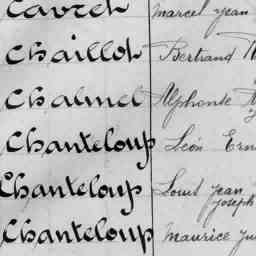 Cavret Marcel Jean
Chaillot Bertrand
Chalmel Alphonse
Chanteloup Léon Ern
Chanteloup Louis Jean
Joseph
Chanteloup Maurice Ju